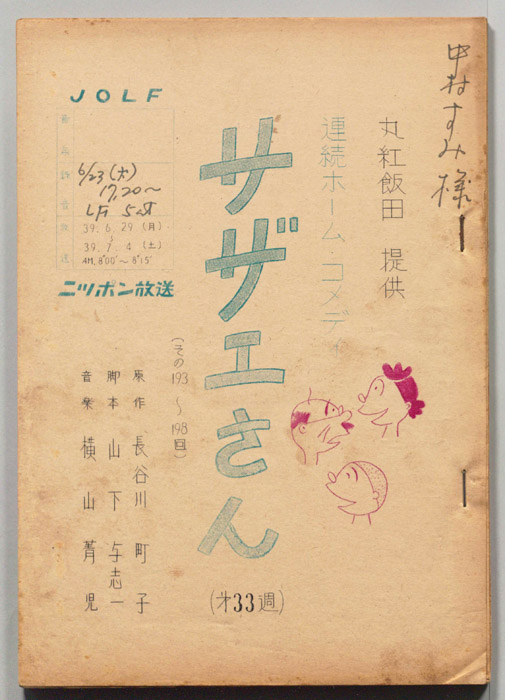 中村すみ様
丸紅飯田 提供
連続ホーム・コメディ
サザエさん
(その193~198回)
(才33週)
原作 長谷川町子
脚本 山下与志一
音楽 横山菁児
JOLF
6/23(火)
17,20~
LF 5st
39.6.29(月)
39.7.4(土)
AM.8°00'~8°15'
ニッポン放送